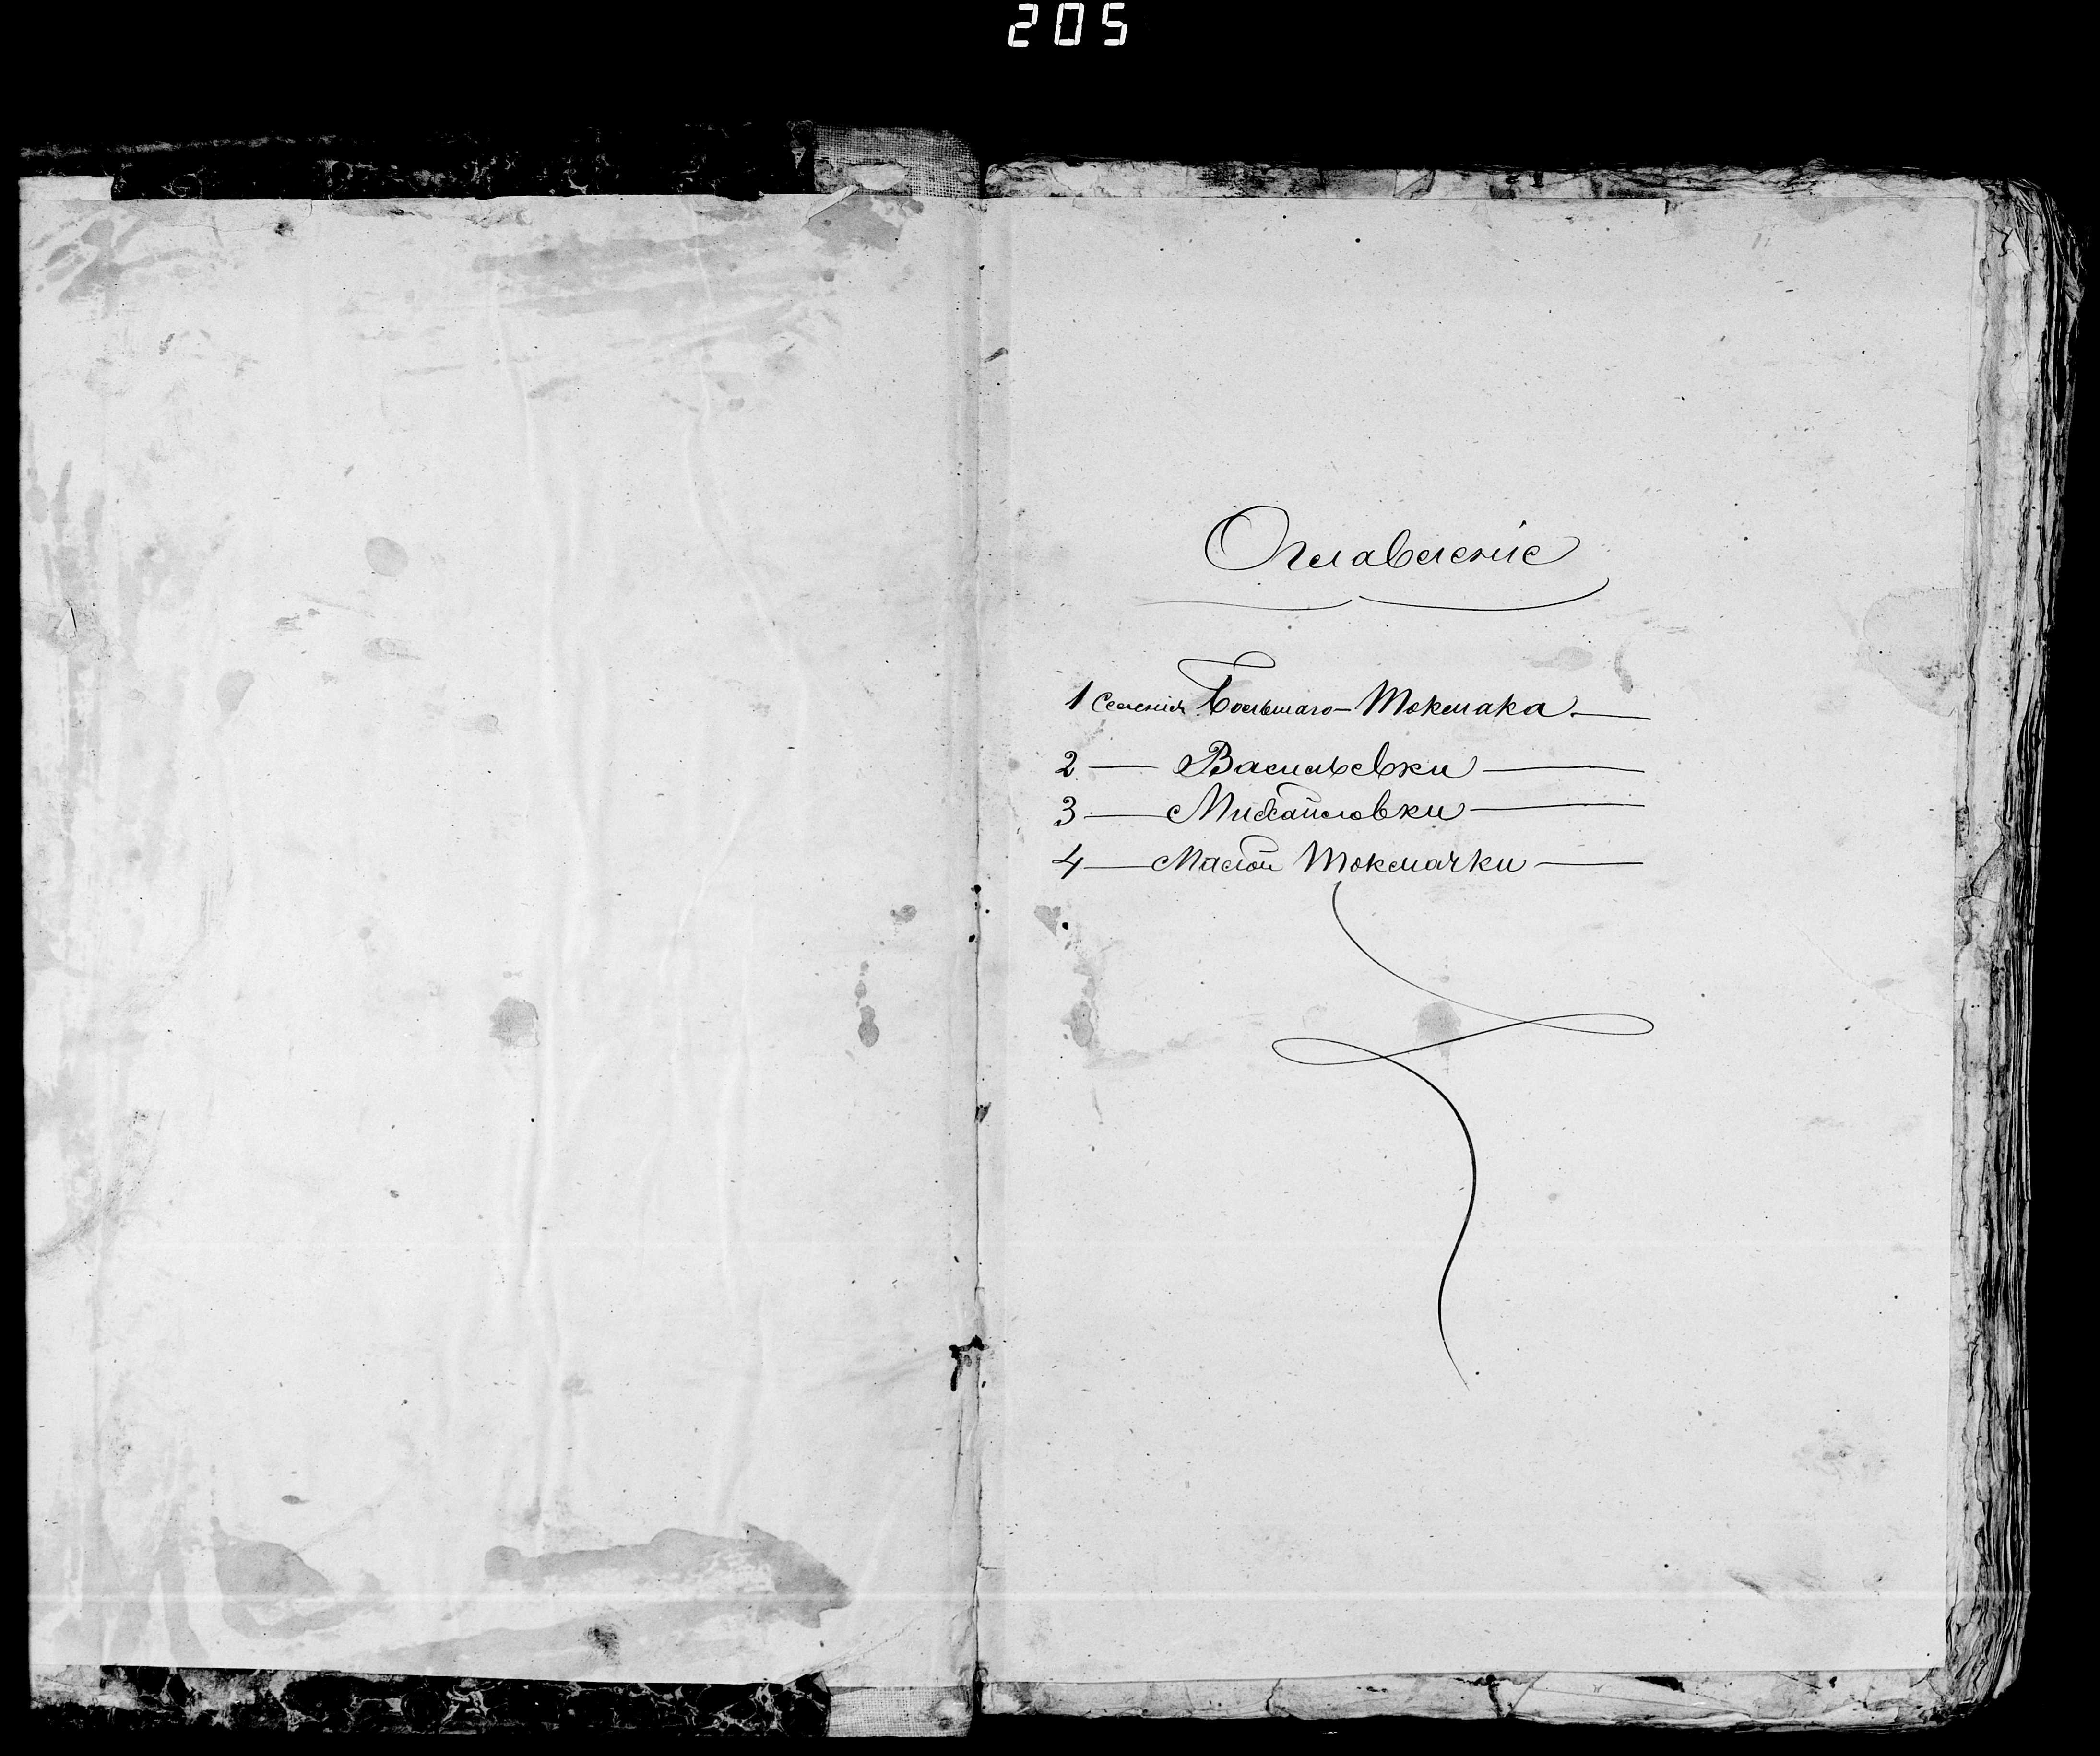 205
Оглавленіе
1 Селенія Большаго-Токмака. —
2 — Васильевки —
3 — Михайловки —
4 — Малой Токмачки —